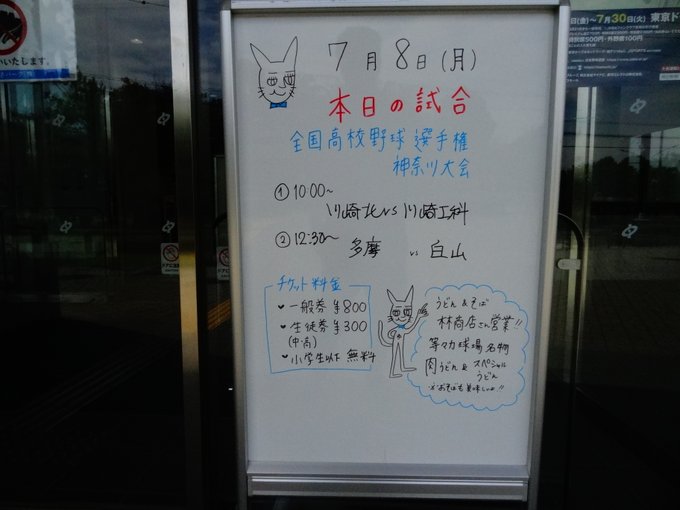 いたします。
7月8日(月)
本日の試合
全国高校野球選手権
神奈川大会
① 10:00~
川崎北 vs 川崎工科
② 12:30~
多摩 vs 白山
チケット料金
一般券 ¥800
生徒券 ¥300
(中高)
小学生以下 無料
うどん&そば
林商店さん営業!!
等々力球場名物
肉うどん & スペシャルうどん
※おそばも美味しいよ!!
(金)~7月30日(火) 東京ド
500円・外野席100円